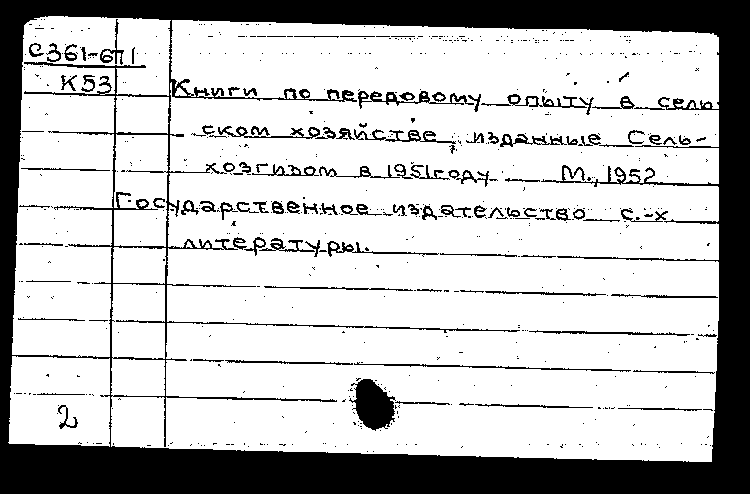 С361-671
К53
Книги по передовому опыту в сель-
ском хозяйстве, изданные Сель-
хозгизом в 1951 году М., 1952
Государственное издательство с.-х.
литературы.
2